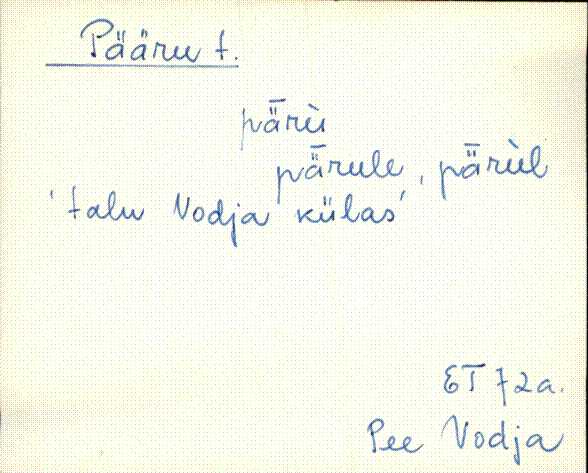 Pääru t.
pǟrù
pǟrule, pǟrùl
'talu Vodja külas'
ET 72a.
Pee Vodja